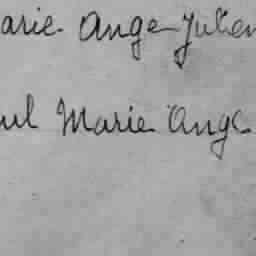 arie Ange Julien
ul Marie Ange